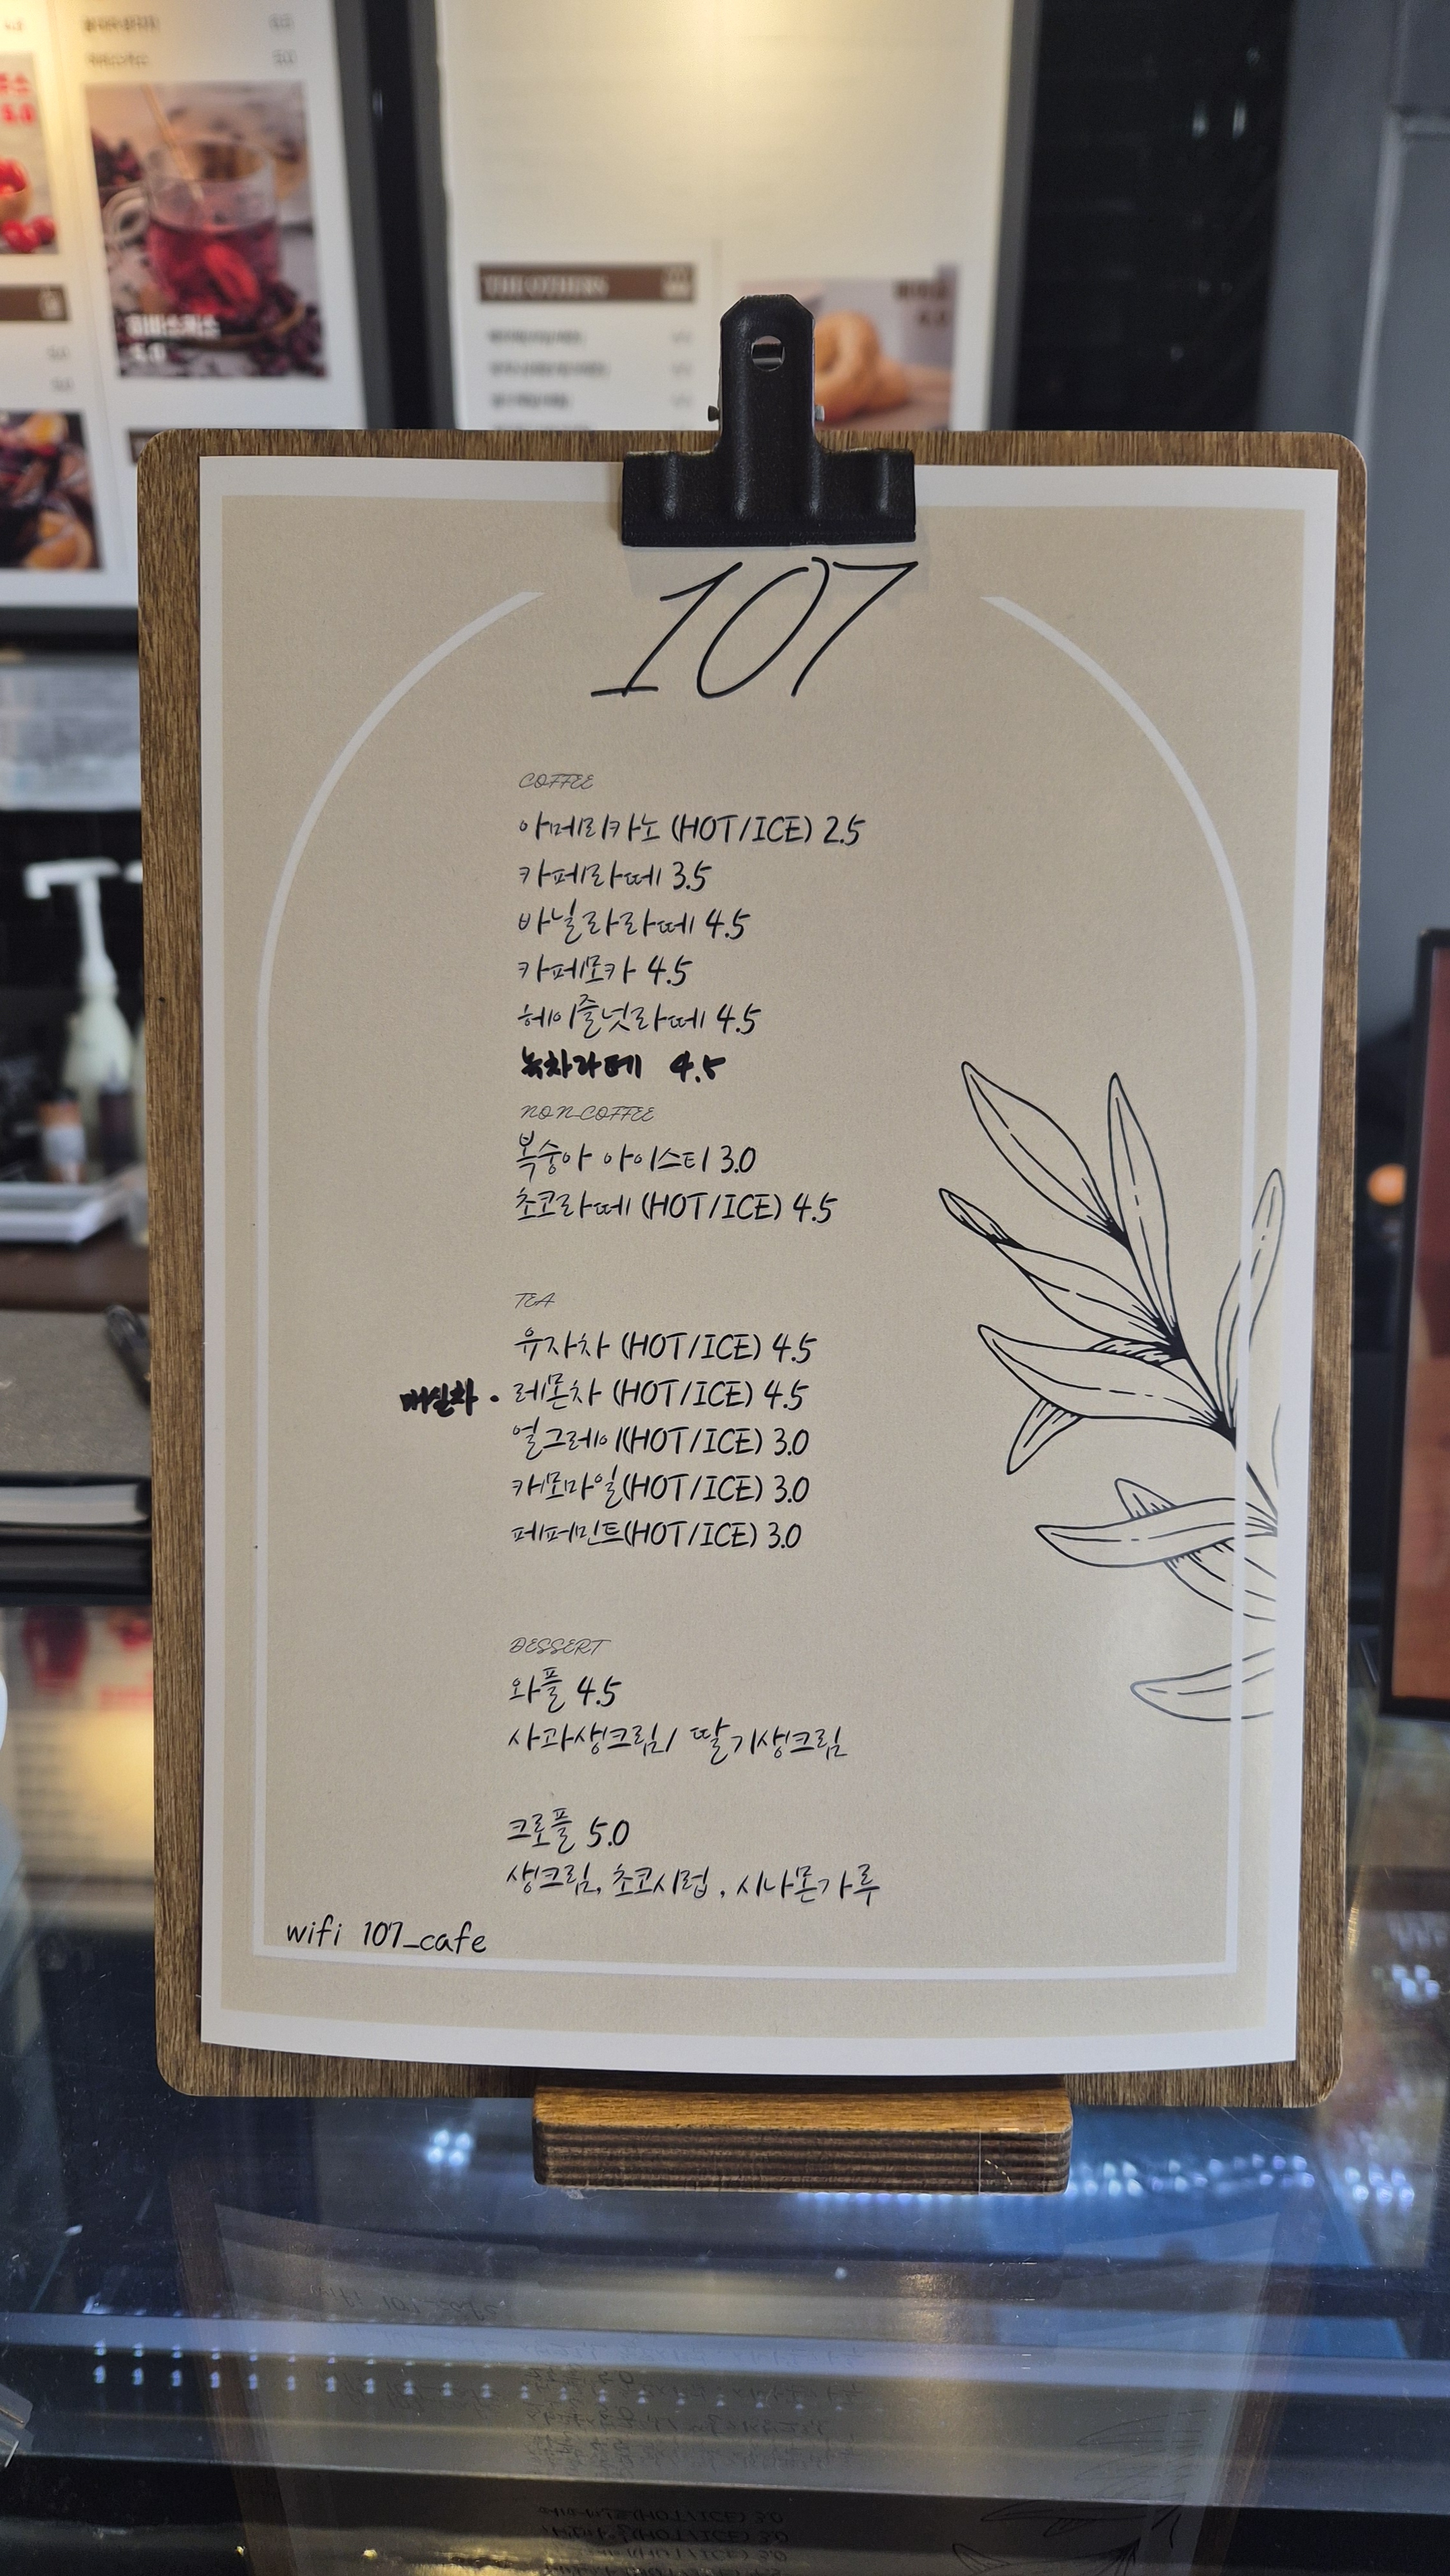 THE OTHERS
히비스커스
5.0
107
COFFEE
아메리카노 (HOT/ICE) 2.5
카페라떼 3.5
바닐라라떼 4.5
카페모카 4.5
헤이즐넛라떼 4.5
녹차라떼 4.5
NON-COFFEE
복숭아 아이스티 3.0
초코라떼 (HOT/ICE) 4.5
TEA
유자차 (HOT/ICE) 4.5
매실차 · 레몬차 (HOT/ICE) 4.5
얼그레이(HOT/ICE) 3.0
캐모마일(HOT/ICE) 3.0
페퍼민트(HOT/ICE) 3.0
DESSERT
와플 4.5
사과생크림/ 딸기생크림
크로플 5.0
생크림, 초코시럽, 시나몬가루
wifi 107_cafe